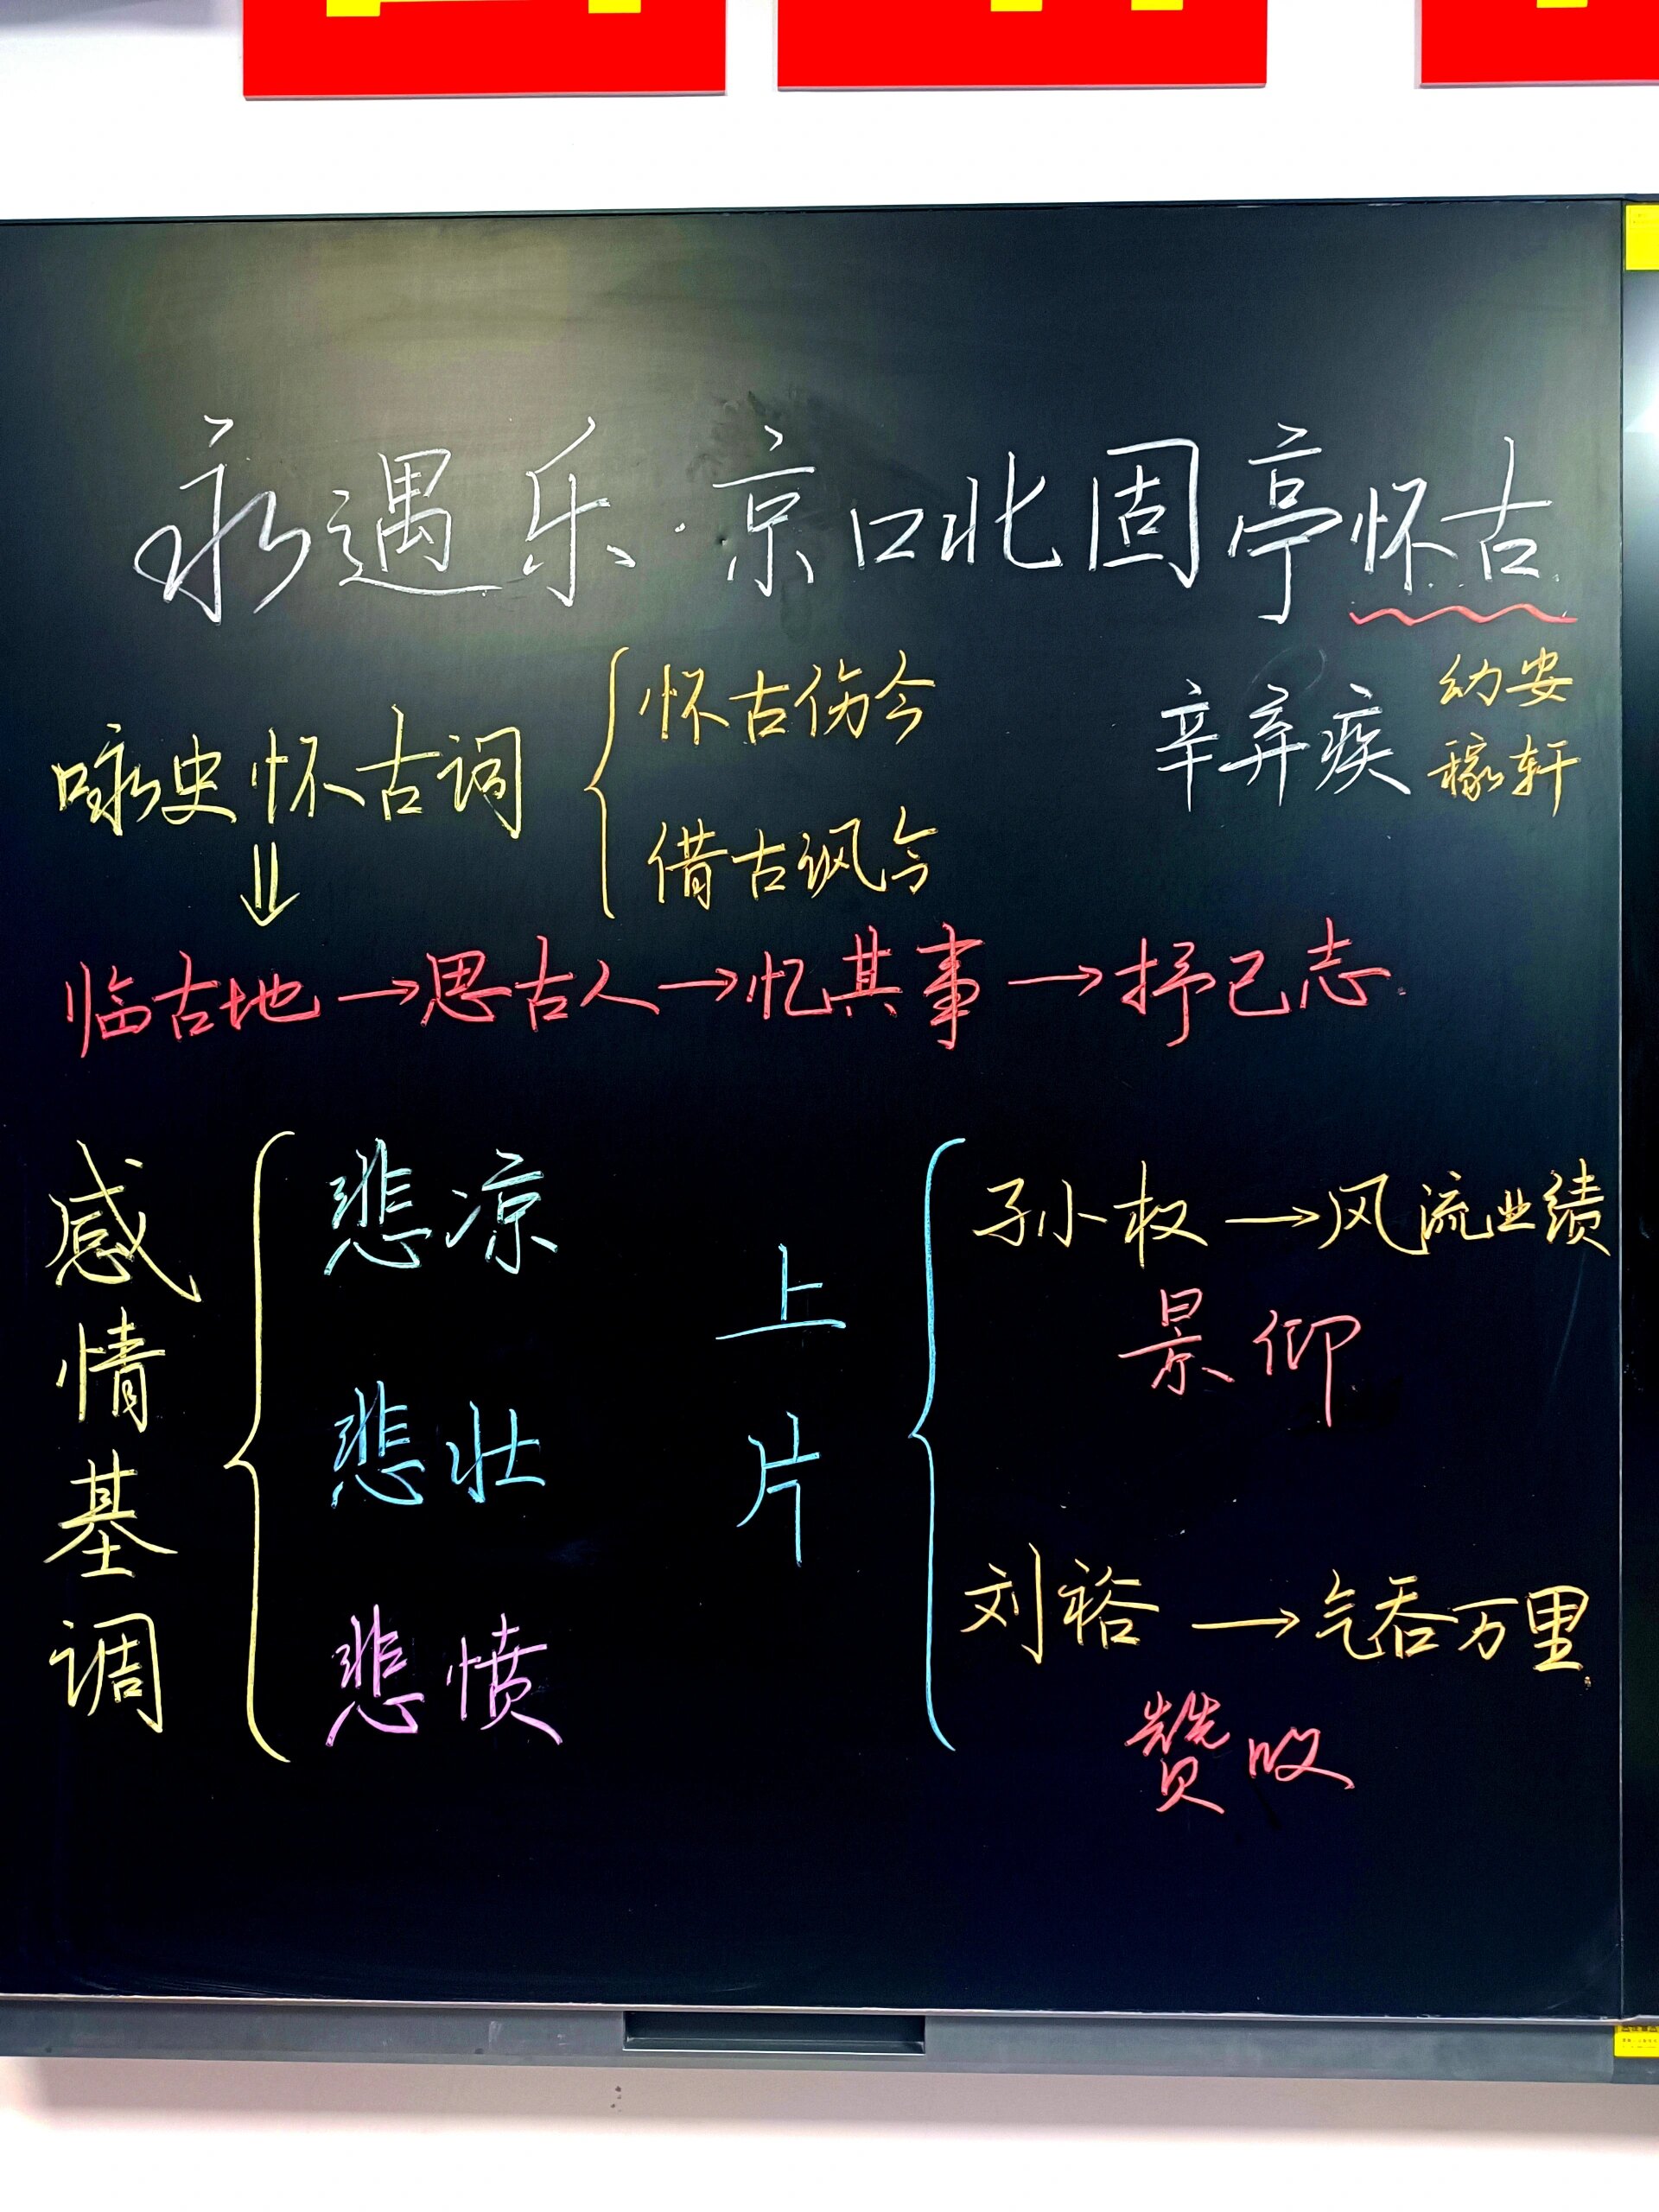 永遇乐·京口北固亭怀古
辛弃疾 幼安
稼轩
咏史怀古词
怀古伤今
借古讽今
⇓
临古地→思古人→忆其事→抒己志
感情基调
悲凉
悲壮
悲愤
上片
孙权→风流业绩
景仰
刘裕→气吞万里
赞叹